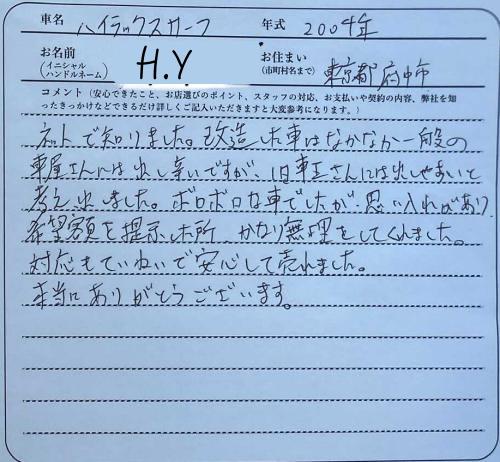 車名 ハイラックスサーフ 年式 2004年
お名前 (イニシャル ハンドルネーム) H.Y お住まい (市町村名まで) 東京都府中市
コメント(安心できたこと、お店選びのポイント、スタッフの対応、お支払いや契約の内容、弊社を知
ったきっかけなどできるだけ詳しくご記入いただきますと大変参考になります。)
ネットで知りました。改造した車はなかなか一般の
車屋さんには出し辛いですが、旧車王さんには出しやすいと
考え出しました。ボロボロな車でしたが、思い入れがあり
希望額を提示した所 かなり無理をしてくれました。
対応もていねいで安心して売れました。
本当にありがとうございます。